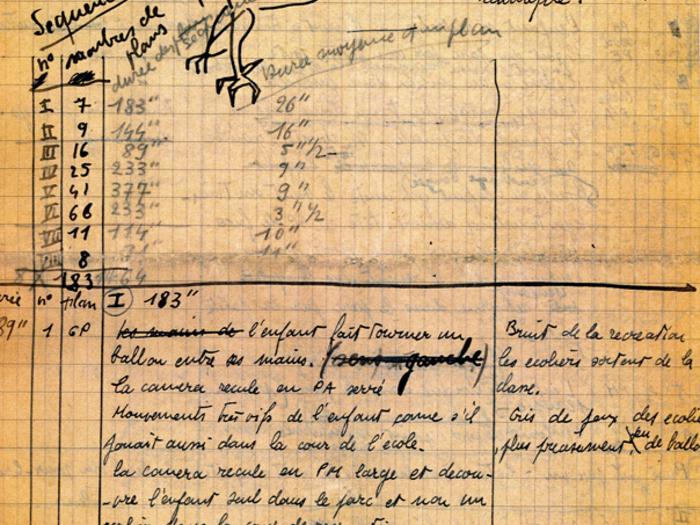 Sequence
n° nombres de plans durée des Durée moyenne d'un plan
I 7 183" 26"
II 9 144" 16"
III 16 89" 5"1/2
IV 25 233" 9"
V 41 377" 9"
VI 66 233" 3"1/2
VII 11 114" 10"
VIII 8 71" 11"
183
n° plan I 183"
89" 1 GP les mains de l'enfant fait tourner un Bruit de la recreation
ballon entre ses mains. (sens gauche) les ecoliers sortent de la
la camera recule en PA serré classe.
Mouvements très vifs de l'enfant come s'il Cris de jeux des ecolie
jouait aussi dans la cour de l'école. plus precisement jeu de ballo
la camera recule en PM large et decou-
-vre l'enfant seul dans le parc et non un